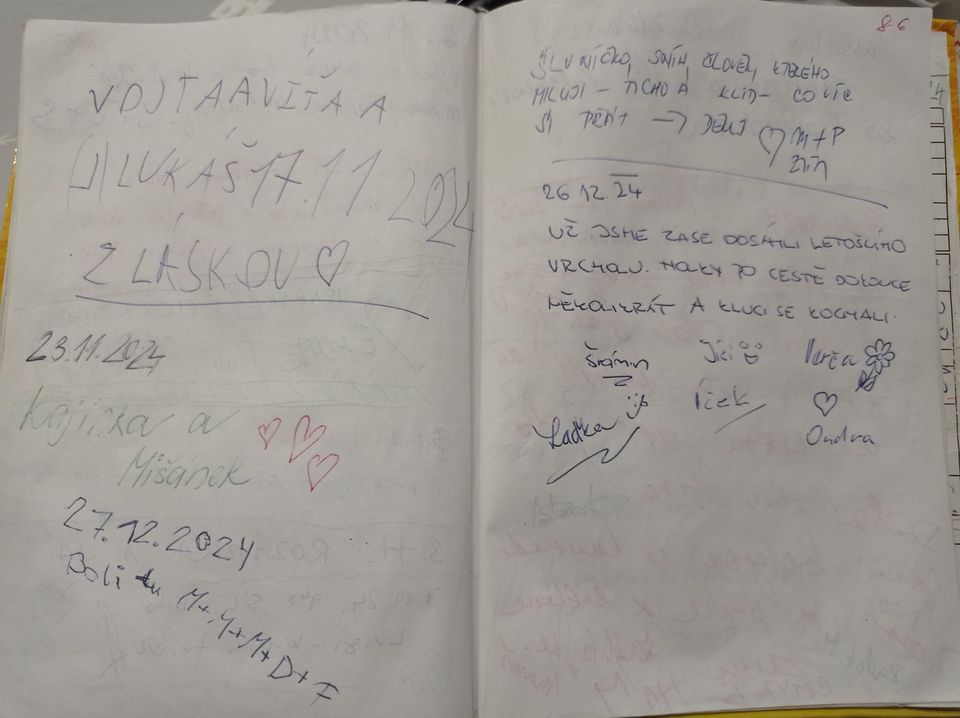 VOJTAAVÍŤA A
LUKÁŠ 17.11. 2024
Z LÁSKOU ♡
23.11.2024
Kajinka a
Mišánek
27.12.2024
Boli tu M+Y+M+D+F
86
SLUNÍČKO, SNÍH, ČLOVĚK, KTERÉHO
MILUJI – TICHO A KLID – CO VÍC
SI PŘÁT → DĚKUJI ♡ M+P
26.12.24
UŽ JSME ZASE DOSÁHLI LETOŠNÍHO
VRCHOLU. HOLKY PO CESTĚ
NĚKOLIKRÁT A KLUCI SE KOCHALI.
Jiří
Verča
Laďka
Íček
♡
Ondra